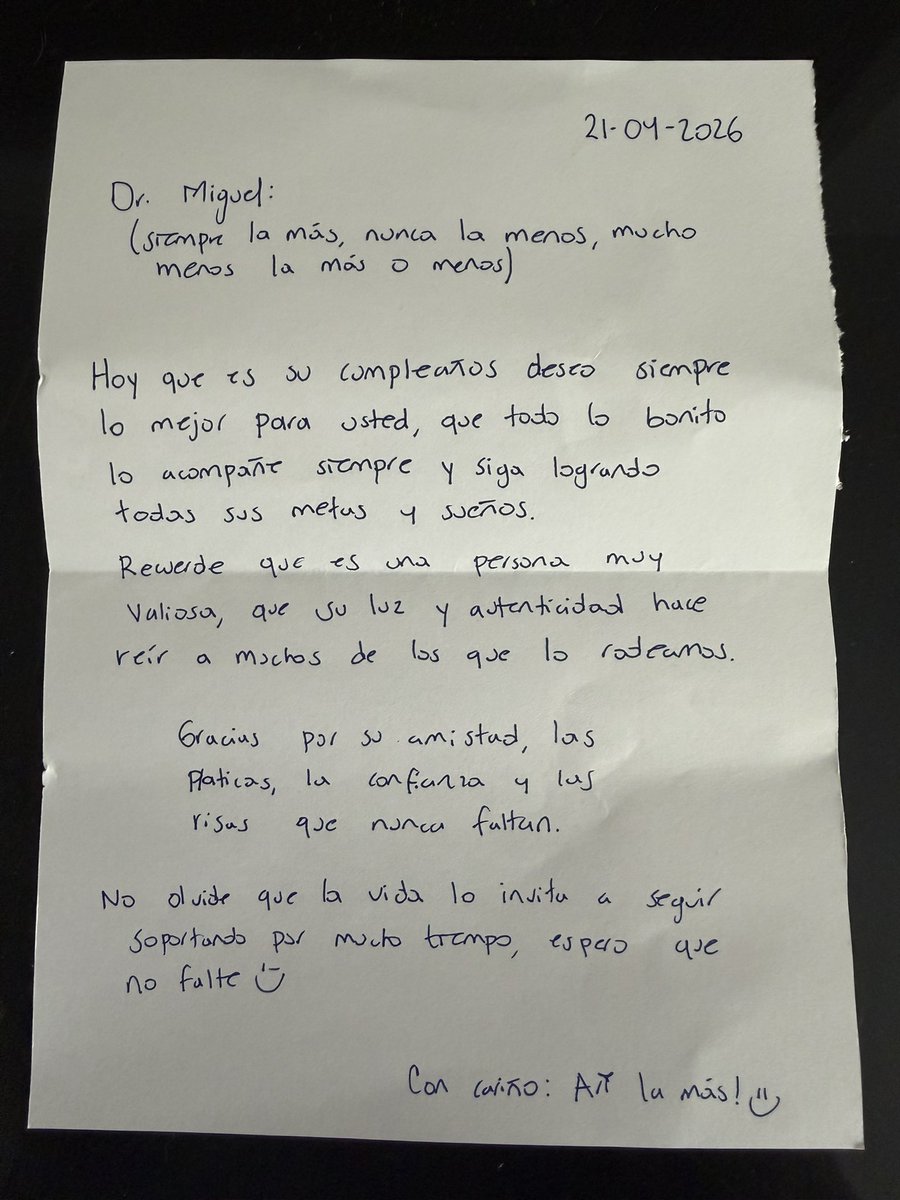 21-04-2026
Dr. Miguel:
(siempre la más, nunca la menos, mucho
menos la más o menos)
Hoy que es su cumpleaños deseo siempre
lo mejor para usted, que todo lo bonito
lo acompañe siempre y siga logrando
todas sus metas y sueños.
Recuerde que es una persona muy
valiosa, que su luz y autenticidad hace
reír a muchos de los que lo rodeamos.
Gracias por su amistad, las
platicas, la confianza y las
risas que nunca faltan.
No olvide que la vida lo invita a seguir
soportando por mucho tiempo, espero que
no falte
Con cariño: la más!